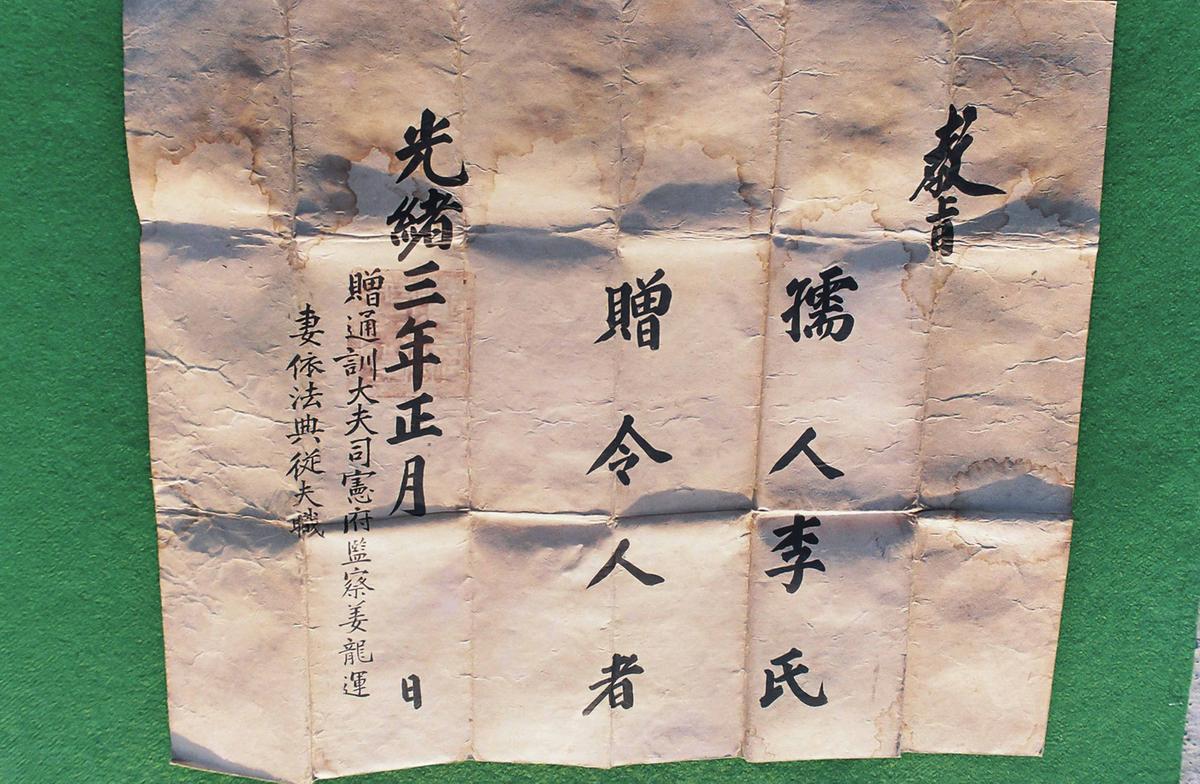 敎旨
孺人李氏
贈令人者
光緖三年正月 日
贈通訓大夫司憲府監察姜龍運
妻依法典從夫職